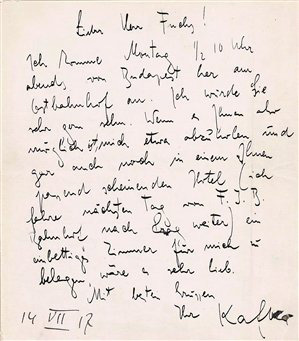 Lieber Herr Fuchs!
Ich komme Montag 1/2 10 Uhr
abends von Budapest her am
Ostbahnhof an. Ich würde Sie
sehr gern sehn. Wenn es Ihnen aber
möglich ist mich etwa abzuholen und
gar auch noch in einem Ihnen
passend scheinenden Hotel (ich
fahre nächsten Tag vom F. J. B.
ahnhof nach Prag weiter) ein
einbettiges Zimmer für mich zu
belegen, wäre es sehr lieb.
Mit besten Grüssen
Ihr Kafka
14 VII 17